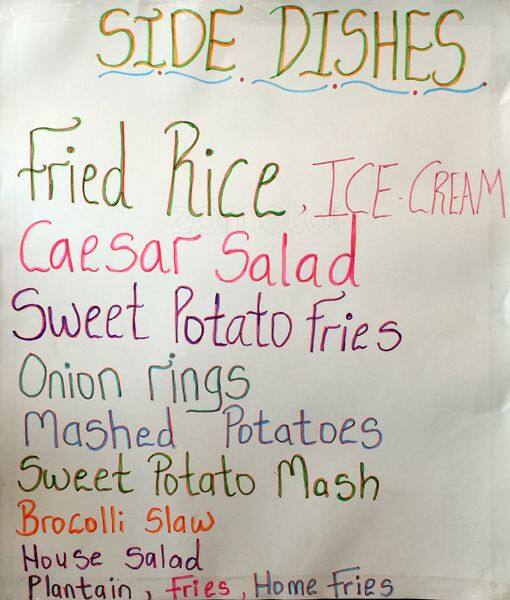 SIDE DISHES
Fried Rice, ICE-CREAM
Caesar Salad
Sweet Potato Fries
Onion rings
Mashed Potatoes
Sweet Potato Mash
Brocolli Slaw
House Salad
Plantain, Fries, Home Fries
zomato